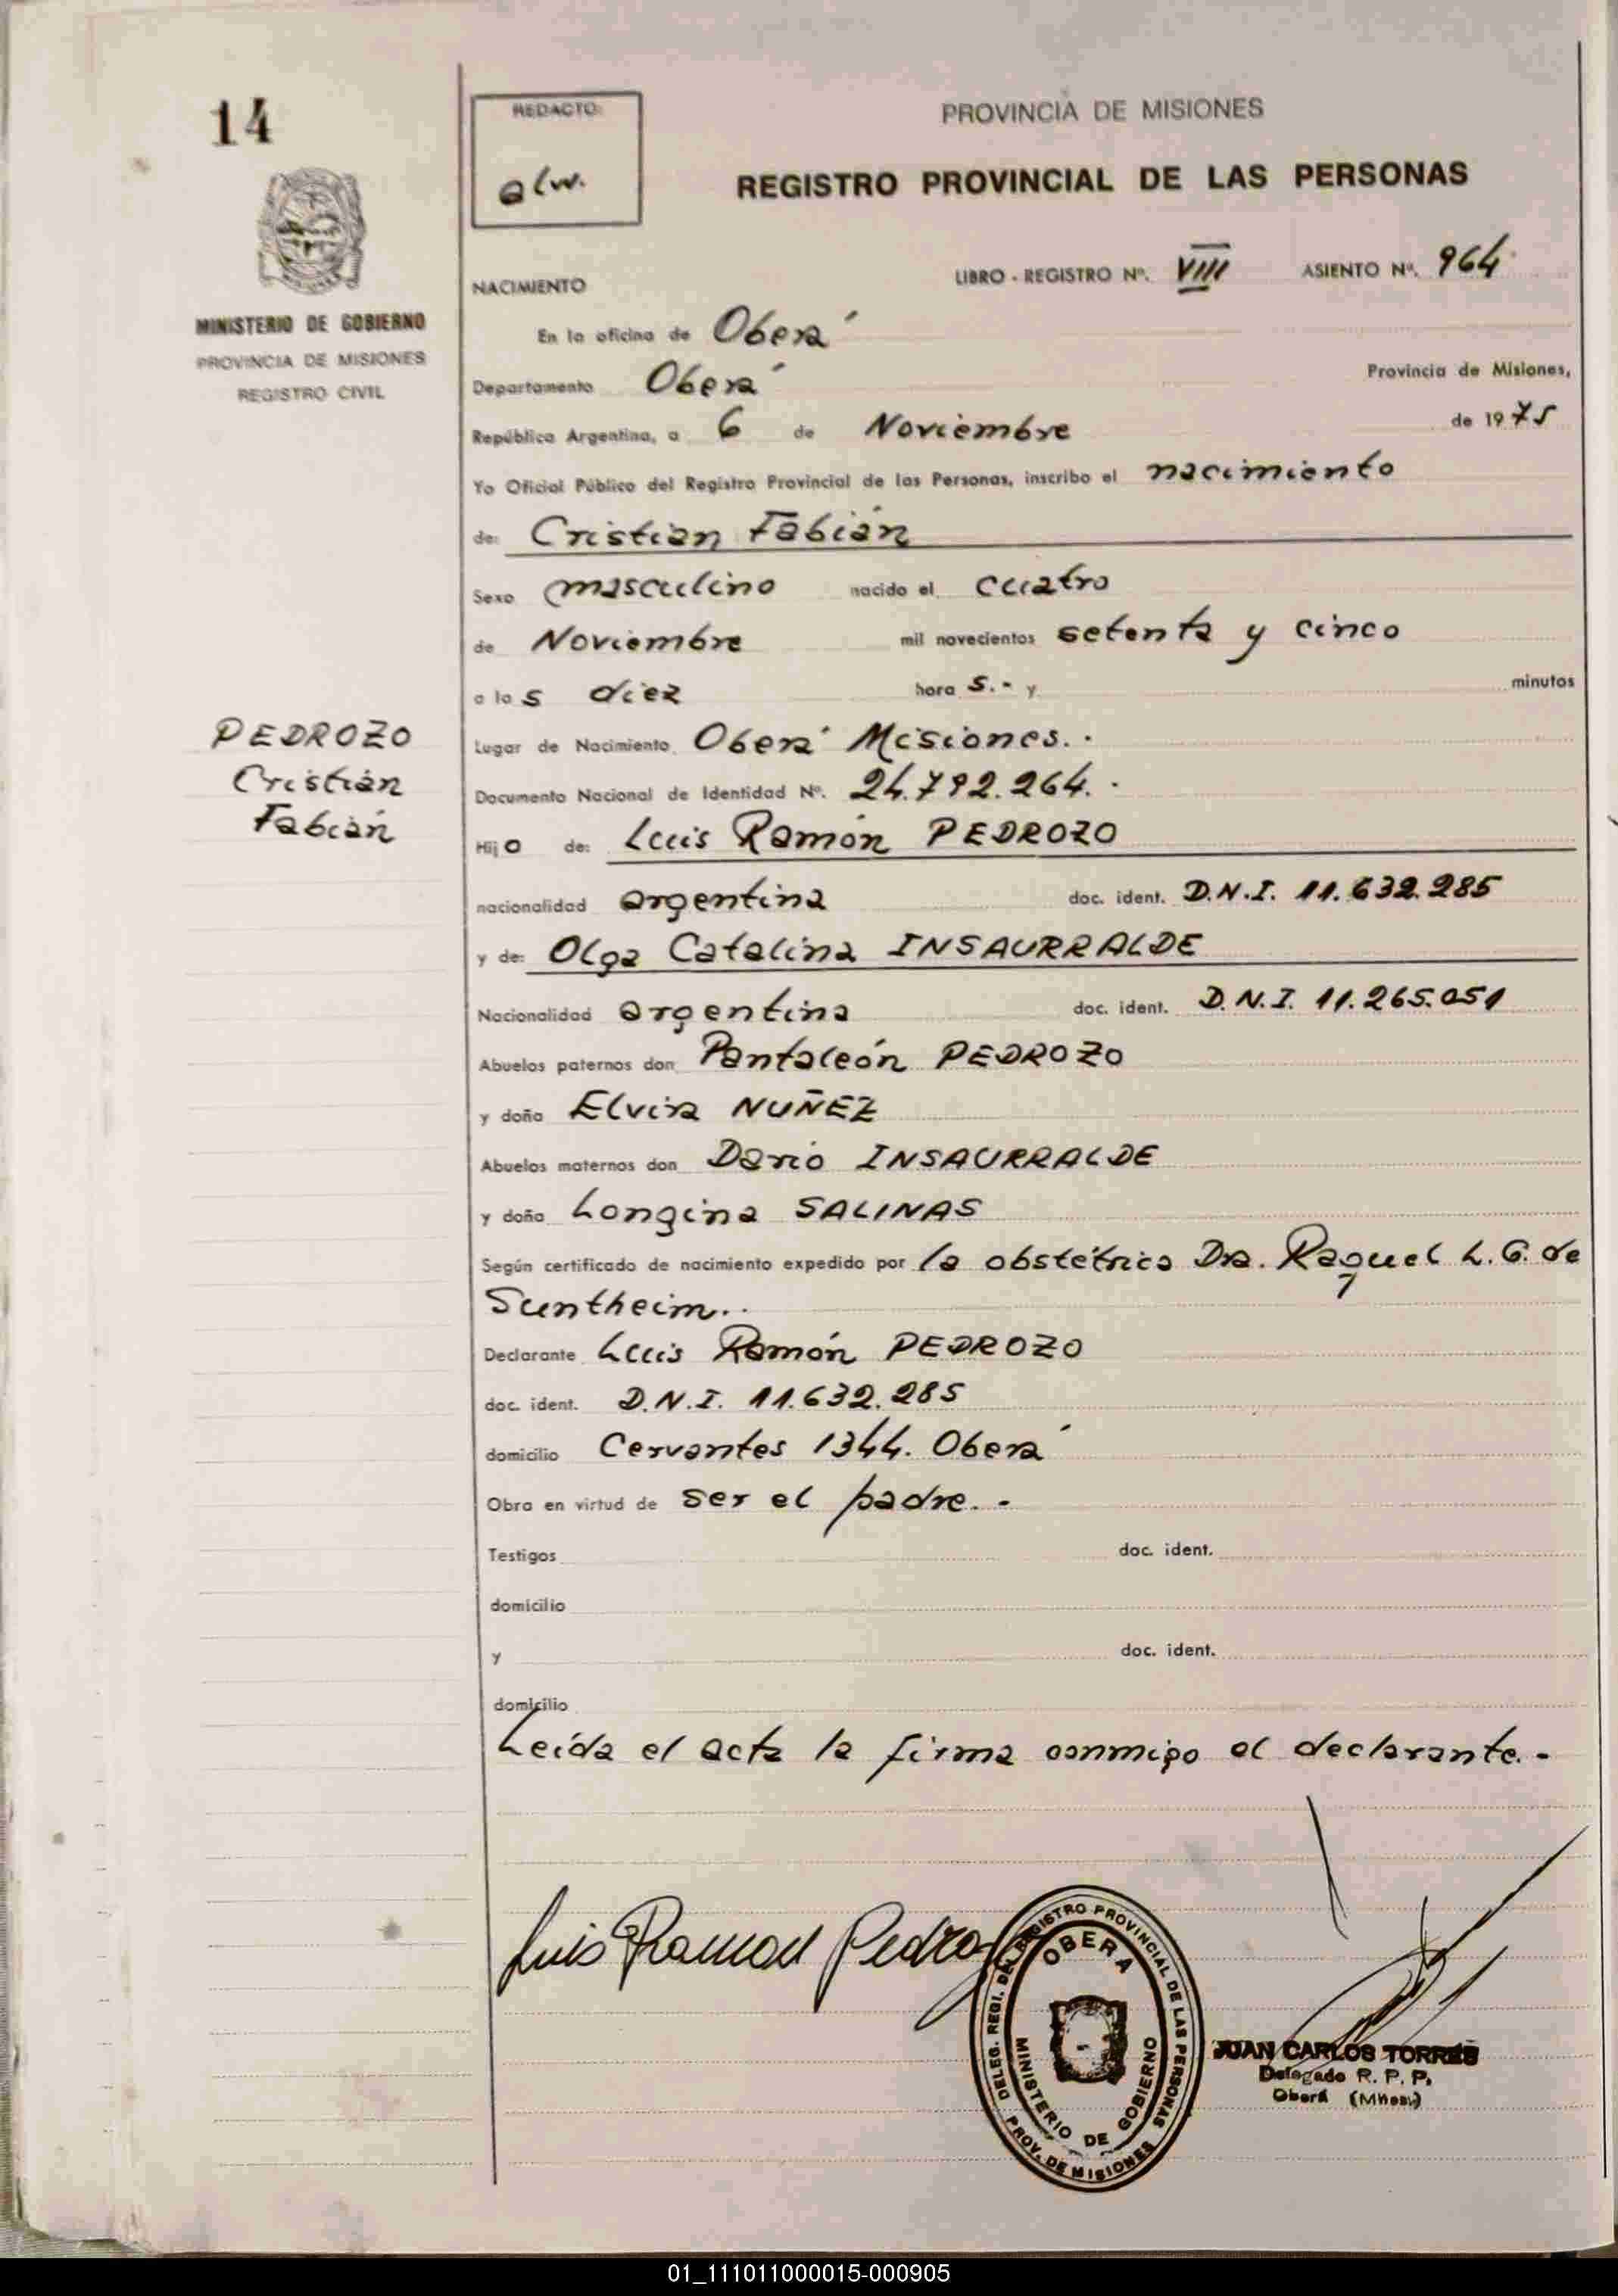 14
REDACTO:
alw.
PROVINCIA DE MISIONES
REGISTRO PROVINCIAL DE LAS PERSONAS
MINISTERIO DE GOBIERNO
PROVINCIA DE MISIONES
REGISTRO CIVIL
NACIMIENTO
LIBRO - REGISTRO Nº. VIII ASIENTO Nº. 964
En la oficina de Oberá
Departamento Oberá Provincia de Misiones,
República Argentina, a 6 de Noviembre de 1975
Yo Oficial Público del Registro Provincial de las Personas, inscribo el nacimiento
de: Cristian Fabián
Sexo masculino nacido el cuatro
de Noviembre mil novecientos setenta y cinco
a las diez hora s.- y minutos
PEDROZO
Cristián
Fabián
Lugar de Nacimiento Oberá Misiones.-
Documento Nacional de Identidad Nº. 24.792.264.-
Hijo de: Luis Ramón PEDROZO
nacionalidad argentina doc. ident. D.N.I. 11.632.285
y de: Olga Catalina INSAURRALDE
Nacionalidad argentina doc. ident. D.N.I. 11.265.051
Abuelos paternos don Pantaleón PEDROZO
y doña Elvira NUÑEZ
Abuelos maternos don Dario INSAURRALDE
y doña Longina SALINAS
Según certificado de nacimiento expedido por la obstétrica Dra. Raquel L. G. de
Suntheim.-
Declarante Luis Ramón PEDROZO
doc. ident. D.N.I. 11.632.285
domicilio Cervantes 1344. Oberá
Obra en virtud de ser el padre.-
Testigos doc. ident.
domicilio
y doc. ident.
domicilio
Leída el acta la firma conmigo el declarante.-
Luis Ramon Pedrozo
DELEG. REGI. DEL REGISTRO PROVINCIAL DE LAS PERSONAS
OBERA
MINISTERIO DE GOBIERNO
PROV. DE MISIONES
JUAN CARLOS TORRES
Delegado R. P. P.
Oberá (Mnes.)
01_111011000015-000905